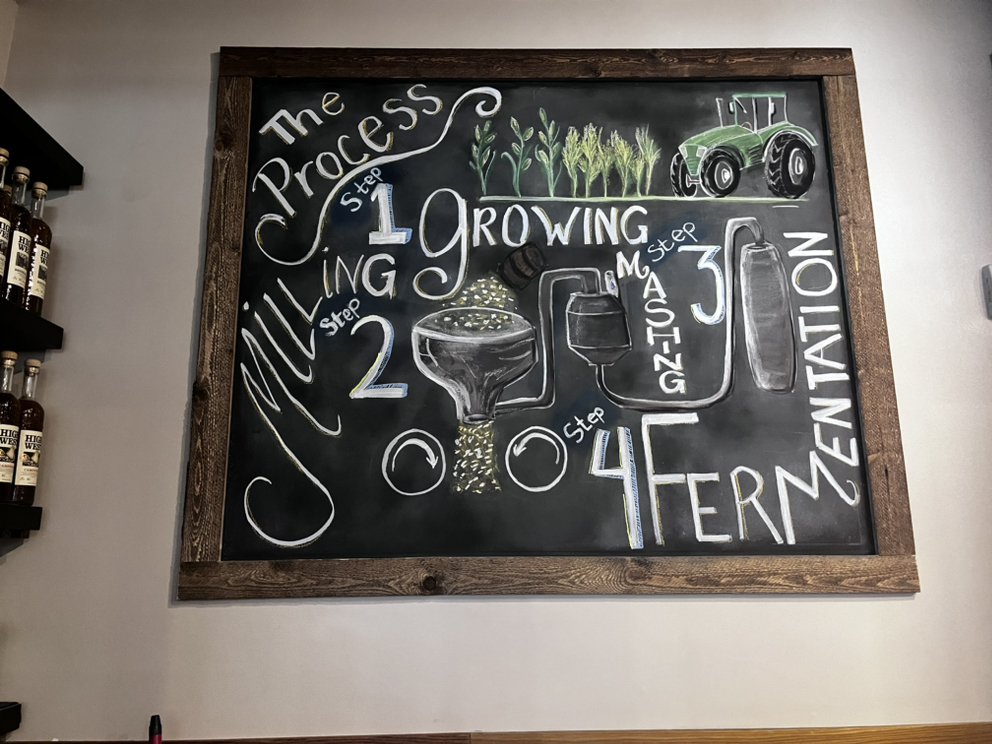 The
Process
Step
1 GROWING
MILLING
Step
2
Step
3
MASHING
Step
4 FERMENTATION
HIGH
WEST
HIGH
WEST
HIGH
WEST
HIGH
WEST